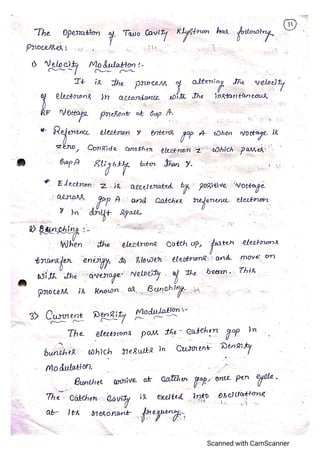 11
The Operation of Two Cavity Klystron has following
processes:
1) Velocity Modulation:-
It is the process of altering the velocity
of electrons in accordance with the instantaneous
RF Voltage present at Gap A.
* Reference electron y enters gap A when voltage is
zero, Conside another electron z which passes
Gap A slightly later than y.
* Electron z is accelerated by positive voltage
across gap A and catches reference electron
y in drift space.
2) Bunching :-
When the electrons catch up, faster electrons
transfer energy to slower electrons and move on
with the average velocity of the beam. This
process is known as Bunching.
3) Current Density Modulation:-
The electrons pass the Catcher gap in
bunches which results in Current Density
Modulation.
Bunches arrive at Catcher gap, once per cycle.
The Catcher Cavity is excited into oscillations
at its resonant frequency.
Scanned with CamScanner